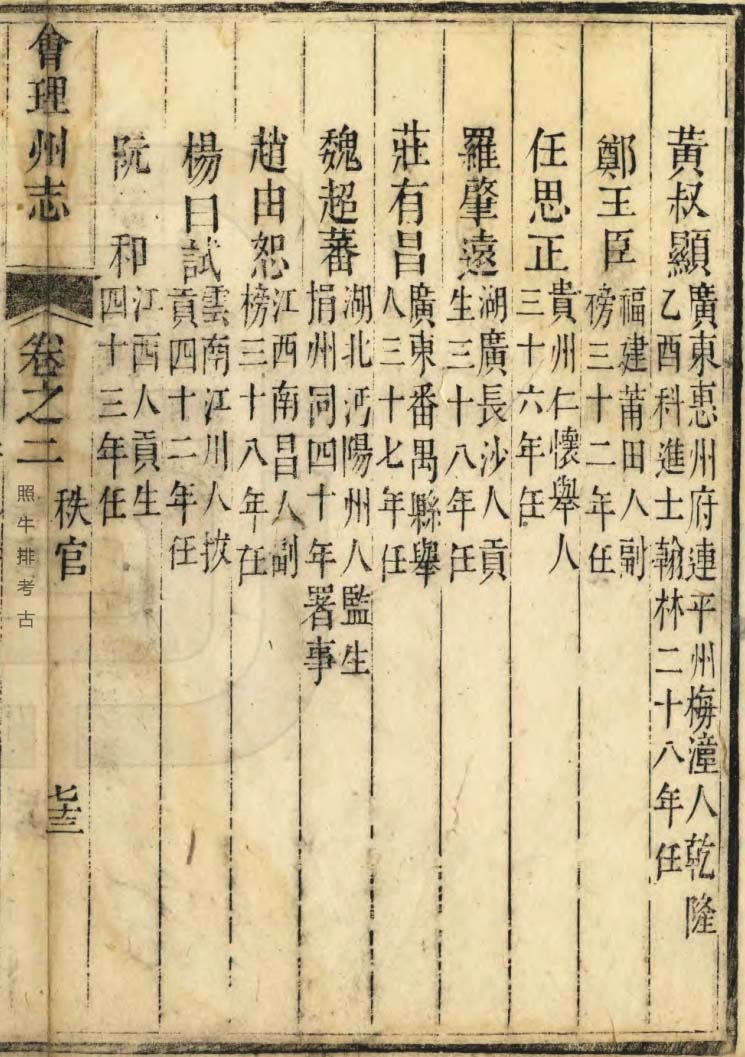 黃叔顯廣東惠州府連平州梅潼人乾隆
乙酉科進士翰林二十八年任
鄭王臣福建莆田人副
榜三十二年任
任思正貴州仁懷舉人
三十六年任
羅肇遠湖廣長沙人貢
生三十八年任
莊有昌廣東番禺縣舉
人三十七年任
魏超蕃湖北沔陽州人監生
捐州同四十年署事
趙由恕江西南昌人副
榜三十八年任
楊曰試雲南江川人拔
貢四十二年任
阮和江西人貢生
四十三年任
會理州志
卷之二
秩官
七十三
照牛排考古